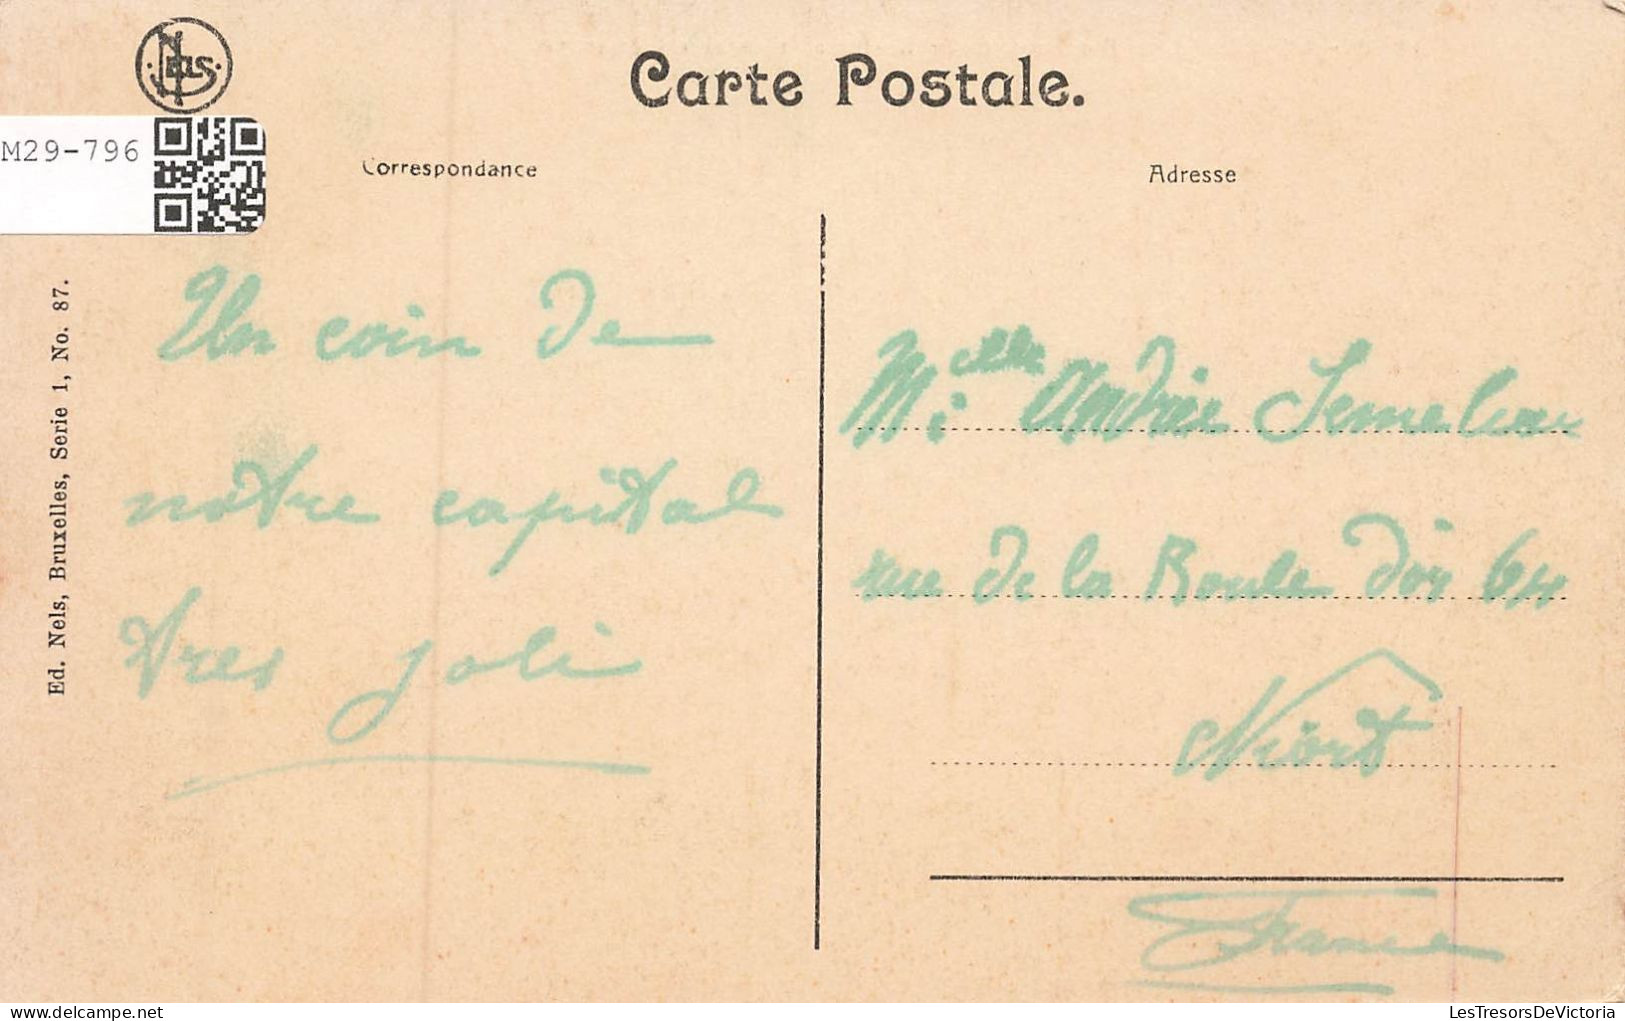 Nels
Carte Postale.
M29-796
Correspondance
Adresse
Ed. Nels, Bruxelles, Serie 1, No. 87.
Un coin de
notre capital
tres joli
Mielle Andrée
rue de la Boule d'or 64
Niort
France
delcampe.net
LesTresorsDeVictoria